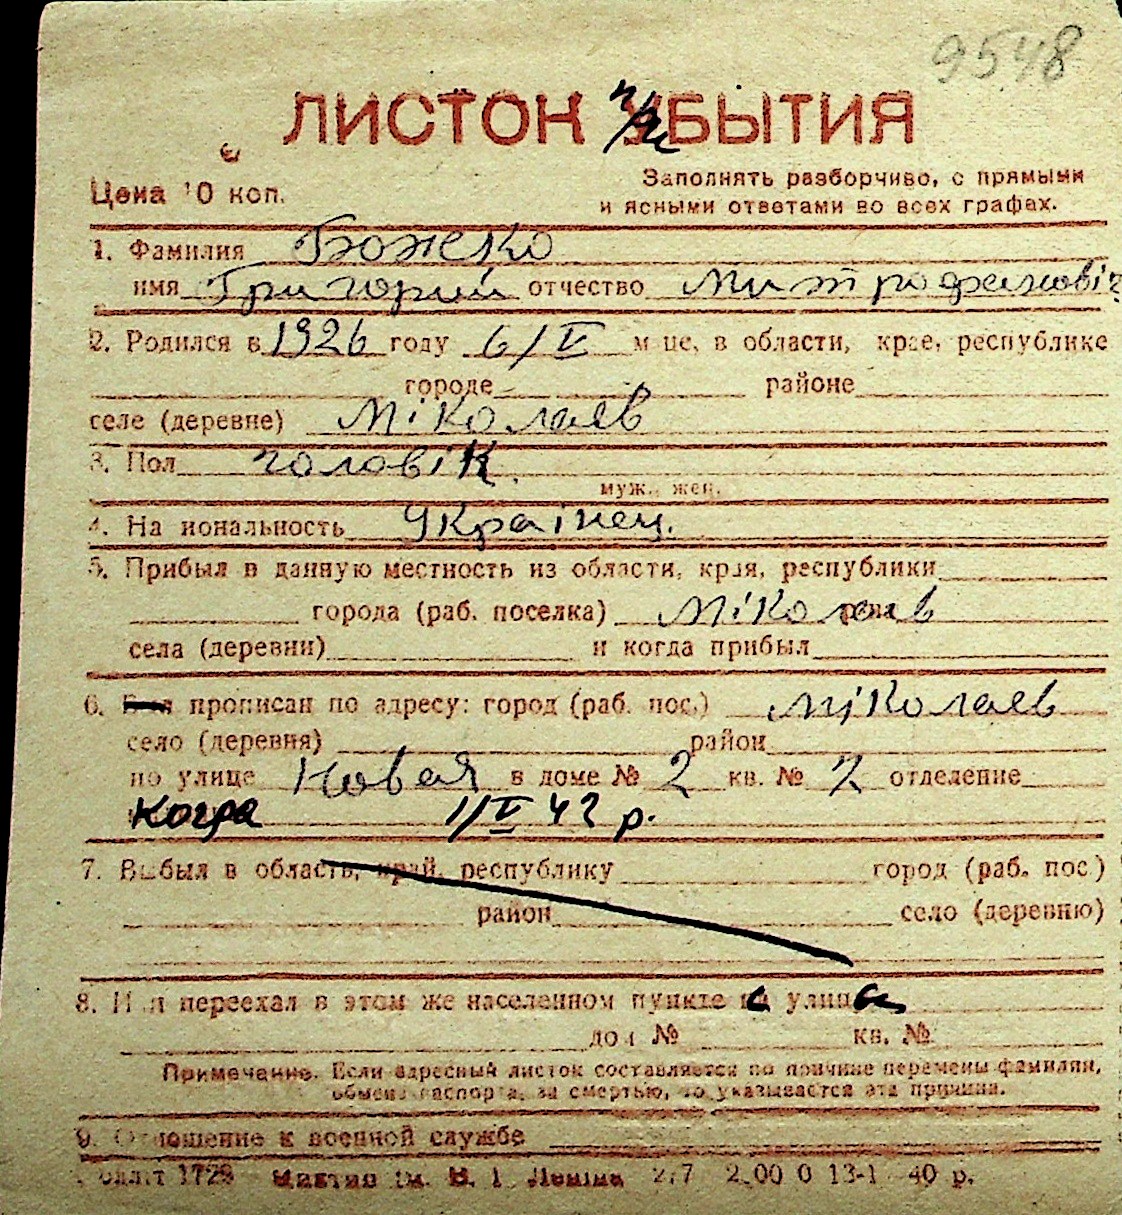 9548
ЛИСТОК ПРИБЫТИЯ
Цена 10 коп.
Заполнять разборчиво, с прямыми
и ясными ответами во всех графах.
1. Фамилия Божеко
имя Григорий отчество Митрофановіч
2. Родился в 1926 году 6/V м-це, в области, крае, республике
городе районе
селе (деревне) Міколаєв
3. Пол чоловік.
муж., жен.
4. Национальность Українец.
5. Прибыл в данную местность из области, края, республики
города (раб. поселка) Міколаєв
села (деревни) и когда прибыл
6. прописан по адресу: город (раб. пос.) Міколаєв
село (деревня) район
по улице Новая в доме № 2 кв. № 2 отделение
Когда 1/V 42 р.
7. Выбыл в область, край, республику город (раб. пос.)
район село (деревню)
8. Или переехал в этом же населенном пункте с улицы
дом № кв. №
Примечание. Если адресный листок составляется по причине перемены фамилии,
обмена паспорта, за смертью, то указывается эта причина.
9. Отношение к военной службе
1728 им. В. І. Леніна 40 р.